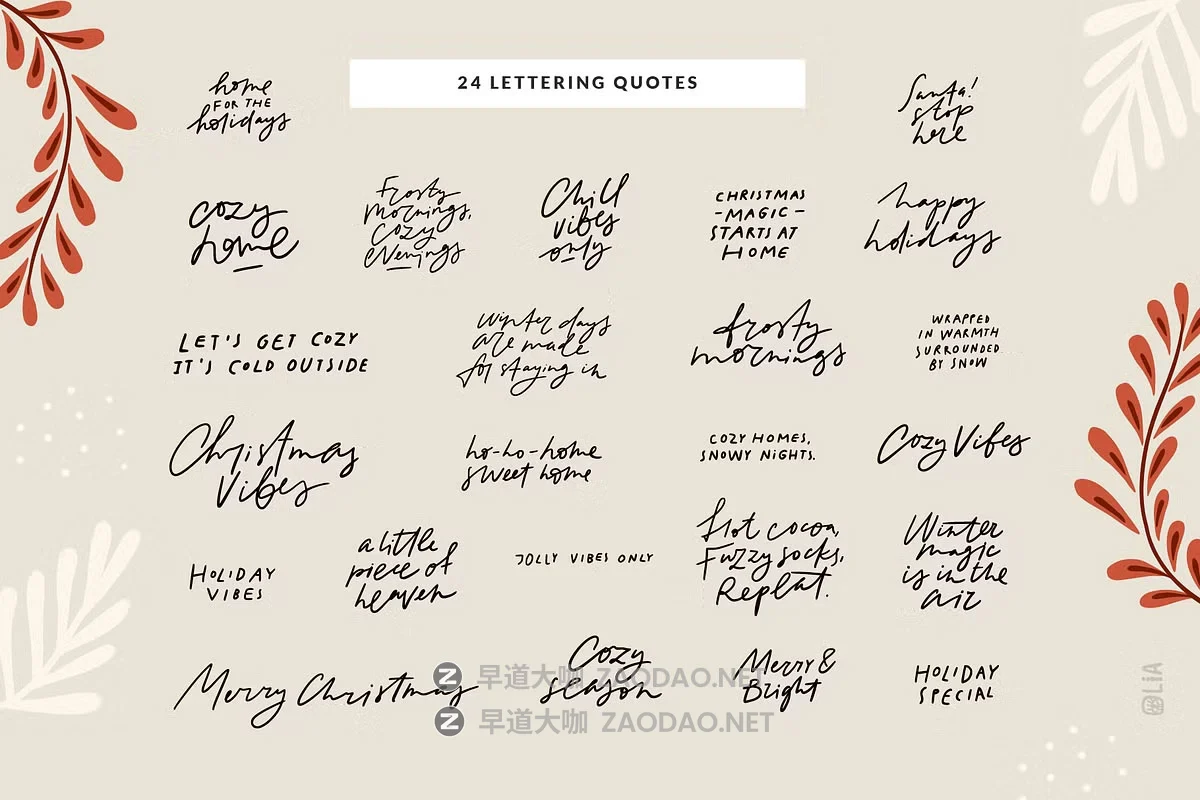 24 LETTERING QUOTES
home
FOR THE
holidays
Santa!
stop
here
cozy
home
Frosty
mornings,
cozy
evenings
Chill
vibes
only
CHRISTMAS
- MAGIC -
STARTS AT
HOME
happy
holidays
LET'S GET COZY
IT'S COLD OUTSIDE
winter days
are made
for staying in
frosty
mornings
WRAPPED
IN WARMTH
SURROUNDED
BY SNOW
Christmas
Vibes
ho-ho-home
sweet home
COZY HOMES,
SNOWY NIGHTS.
Cozy Vibes
HOLIDAY
VIBES
a little
piece of
heaven
JOLLY VIBES ONLY
Hot cocoa,
Fuzzy socks,
Repeat.
Winter
magic
is in the
air
Merry Christmas
Cozy
season
Merry &
Bright
HOLIDAY
SPECIAL
早道大咖 ZAODAO.NET
早道大咖 ZAODAO.NET